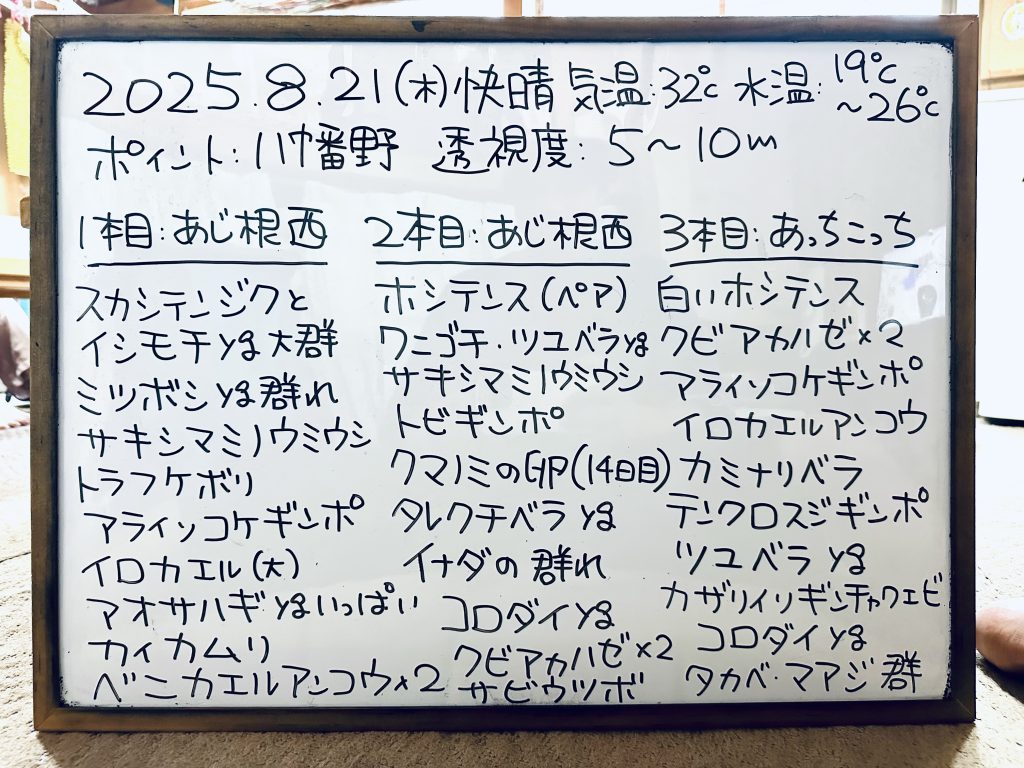 2025.8.21(木)快晴 気温:32℃ 水温:19℃~26℃
ポイント:八幡野 透視度:5~10m
1本目:あじ根西
スカシテンジクと
イシモチyg大群
ミツボシyg群れ
サキシマミノウミウシ
トラフケボリ
アライソコケギンポ
イロカエル(大)
アオサハギygいっぱい
カイカムリ
ベニカエルアンコウ×2
2本目:あじ根西
ホシテンス(ペア)
ワニゴチ・ツユベラyg
サキシマミノウミウシ
トビギンポ
クマノミのEgg(14日目)
タレクチベラyg
イナダの群れ
コロダイyg
クビアカハゼ×2
サビウツボ
3本目:あっちこっち
白いホシテンス
クビアカハゼ×2
アライソコケギンポ
イロカエルアンコウ
カミナリベラ
テンクロスジギンポ
ツユベラyg
カザリイソギンチャクエビ
コロダイyg
タカベ・マアジ群